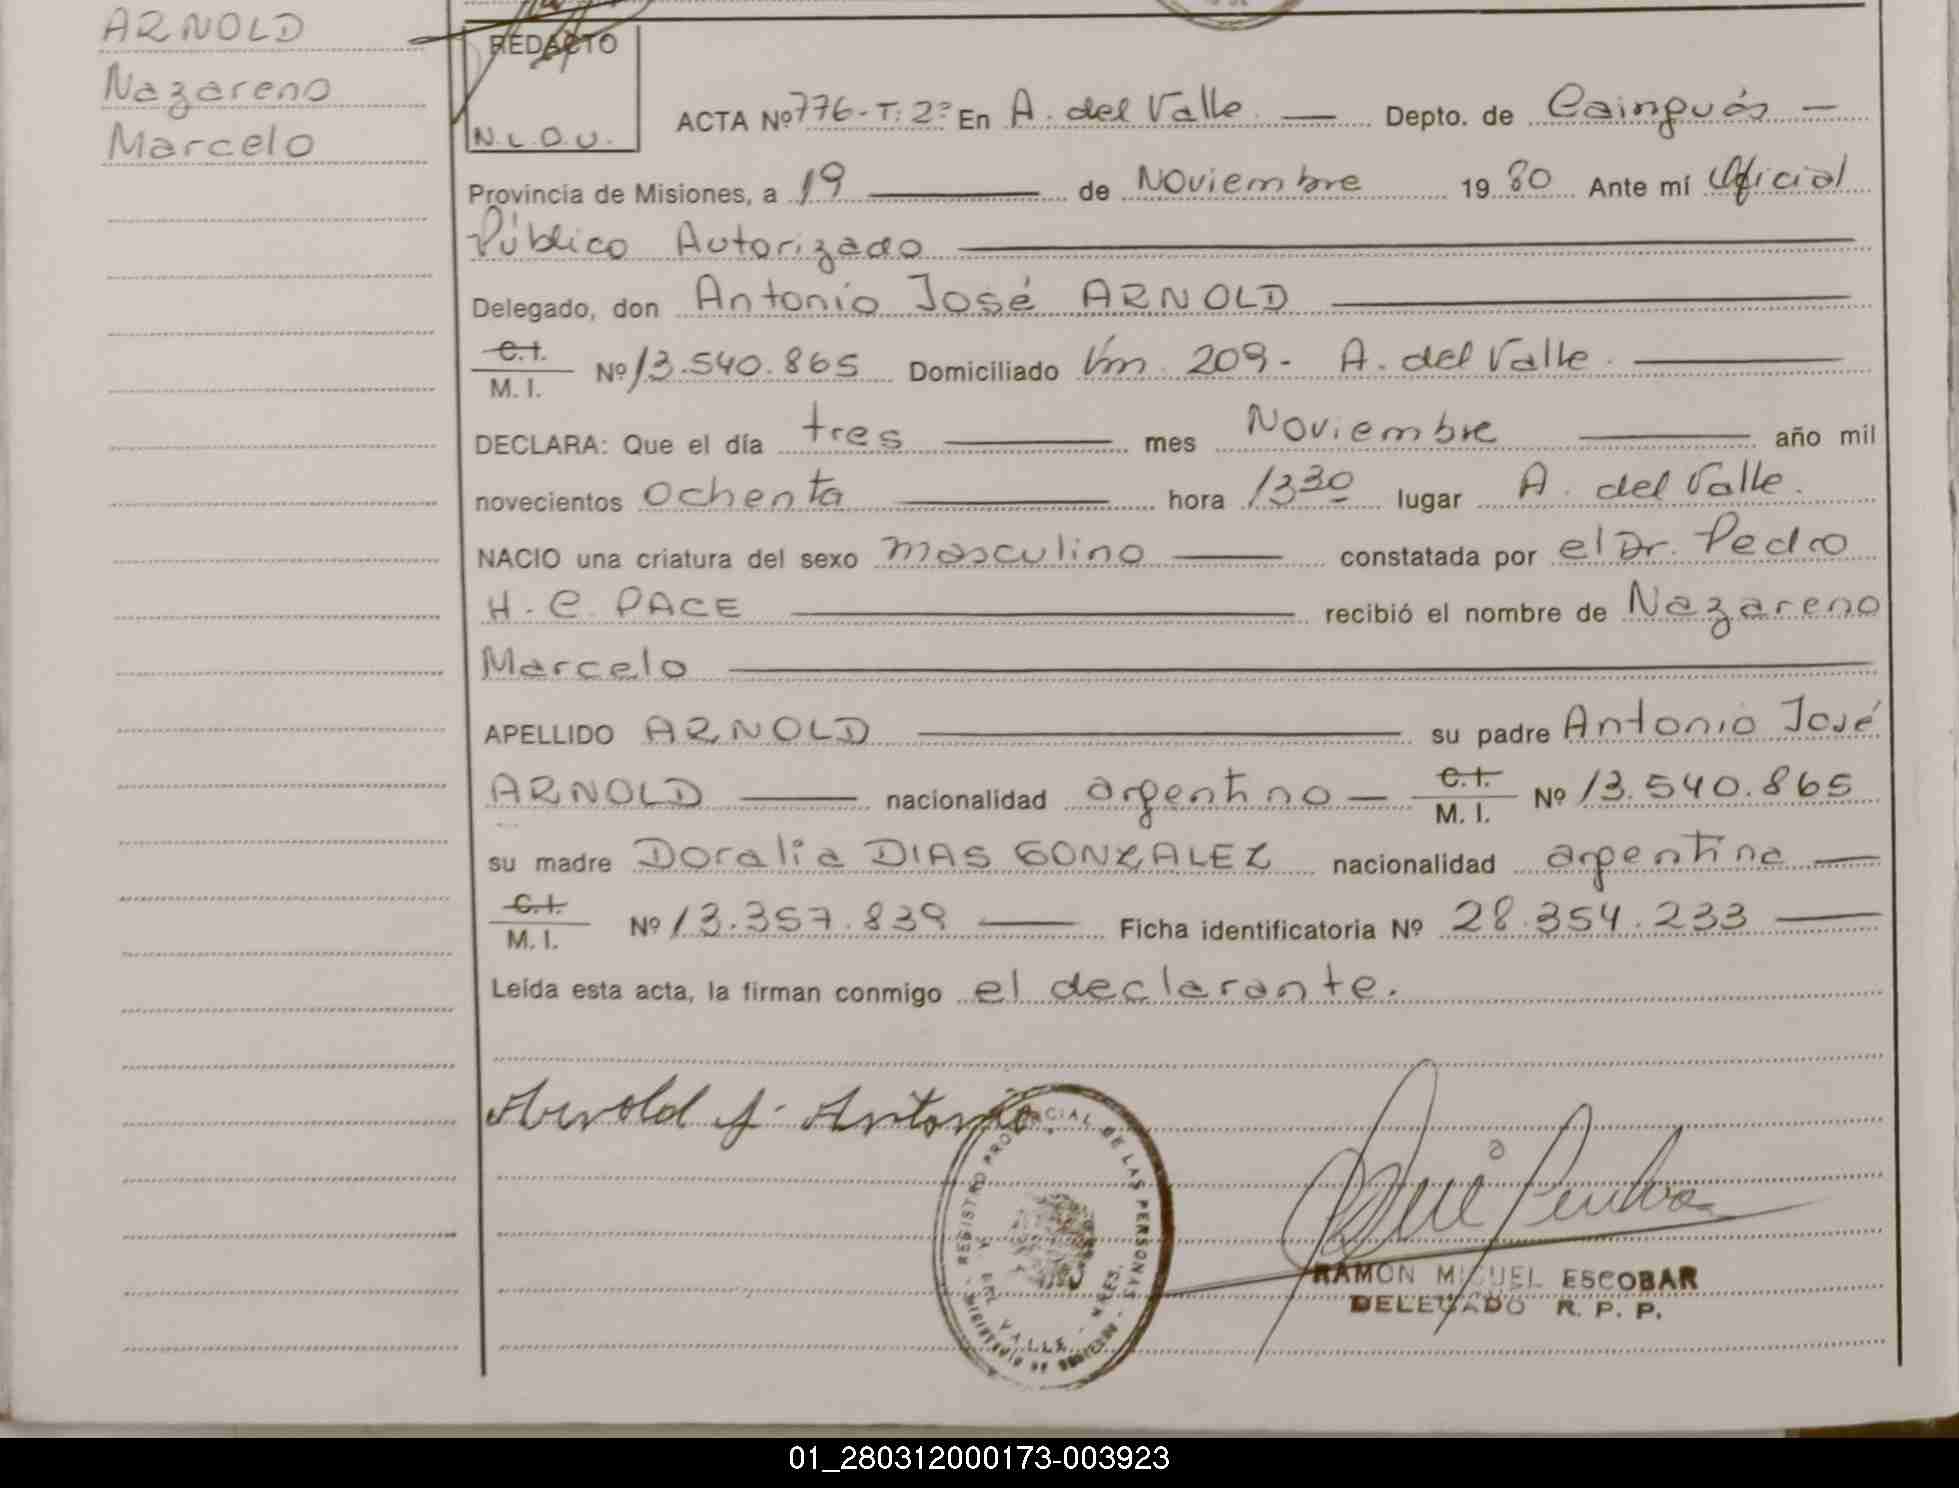 ARNOLD
Nazareno
Marcelo
REDACTO
N.L.O.U.
ACTA Nº 776-T: 2º En A. del Valle — Depto. de Cainguás —
Provincia de Misiones, a 19 — de Noviembre 19 80 Ante mí Oficial
Público Autorizado —
Delegado, don Antonio José ARNOLD —
C.I.
M. I. Nº 13.540.865 Domiciliado Km 209 - A. del Valle. —
DECLARA: Que el día tres — mes Noviembre — año mil
novecientos Ochenta — hora 13 30 lugar A. del Valle.
NACIO una criatura del sexo masculino — constatada por el Dr. Pedro
H. C. PACE — recibió el nombre de Nazareno
Marcelo —
APELLIDO ARNOLD — su padre Antonio José
ARNOLD — nacionalidad argentino — C.I.
M. I. Nº 13.540.865
su madre Doralia DIAS GONZALEZ nacionalidad argentina —
C.I.
M. I. Nº 13.357.839 — Ficha identificatoria Nº 28.354.233 —
Leída esta acta, la firman conmigo el declarante.
Arnold J. Antonio
REGISTRO PROVINCIAL DE LAS PERSONAS
A. DEL VALLE - MNES.
RAMON MIGUEL ESCOBAR
DELEGADO R. P. P.
01_280312000173-003923